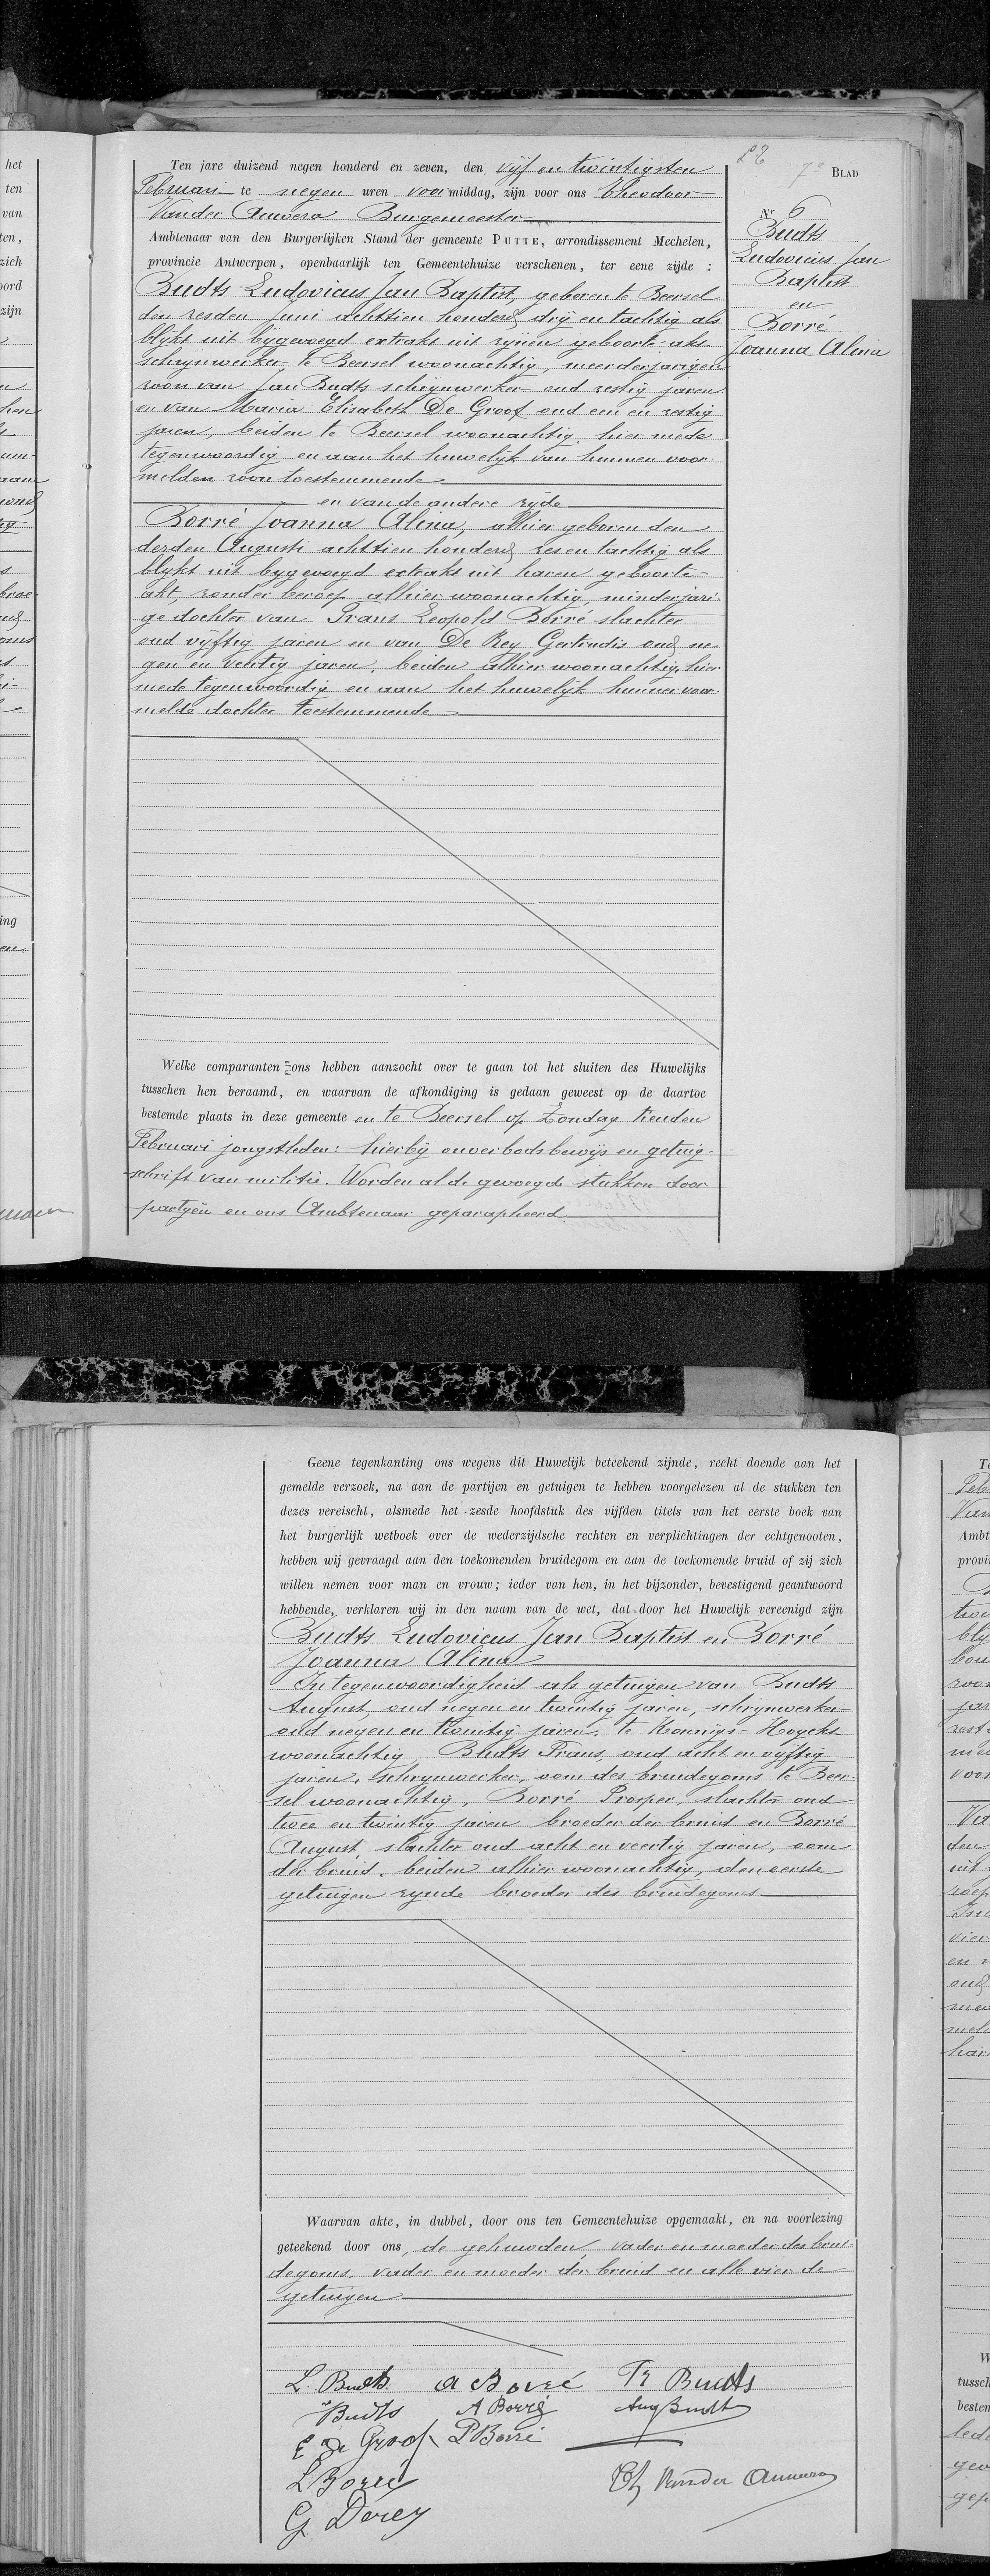 Ten jare duizend negen honderd en zeven, den vijf en twintigsten
Februari te negen uren voormiddag, zijn voor ons Theodoor
Vander Auwera Burgemeester
Ambtenaar van den Burgerlijken Stand der gemeente PUTTE, arrondissement Mechelen,
provincie Antwerpen, openbaarlijk ten Gemeentehuize verschenen, ter eene zijde :
Budts Ludovicus Jan Baptist, geboren te Beersel
den zesden juni achttien honderd drij en tachtig als
blijkt uit bijgevoegd extrakt uit zijnen geboorte-akt
schrijnwerker, te Beersel woonachtig, meerderjarigen
zoon van Jan Budts schrijnwerker oud zestig jaren
en van Maria Elisabeth De Groof oud een en zestig
jaren, beiden te Beersel woonachtig, hier mede
tegenwoordig en aan het huwelijk van hunnen voor-
melden zoon toestemmende
en van de andere zijde
Borré Joanna Alina, alhier geboren den
derden Augusti achttien honderd zes en tachtig als
blijkt uit bijgevoegd extrakt uit haren geboorte-
akt, zonder beroep alhier woonachtig, minderjari-
ge dochter van Frans Leopold Borré slachter
oud vijftig jaren en van De Rey Gertrudis oud ne-
gen en veertig jaren, beiden alhier woonachtig, hier
mede tegenwoordig en aan het huwelijk hunner voor-
melde dochter toestemmende
7e BLAD
Nr 6
Budts
Ludovicus Jan
Baptist
en
Borré
Joanna Alina
Welke comparanten ons hebben aanzocht over te gaan tot het sluiten des Huwelijks
tusschen hen beraamd, en waarvan de afkondiging is gedaan geweest op de daartoe
bestemde plaats in deze gemeente en te Beersel op Zondag tienden
Februari jongstleden: hierbij onverbodsbewijs en getuig-
schrift van militie. Worden al de gevoegde stukken door
partijen en ons Ambtenaar geparapheerd.
Geene tegenkanting ons wegens dit Huwelijk beteekend zijnde, recht doende aan het
gemelde verzoek, na aan de partijen en getuigen te hebben voorgelezen al de stukken ten
dezes vereischt, alsmede het zesde hoofdstuk des vijfden titels van het eerste boek van
het burgerlijk wetboek over de wederzijdsche rechten en verplichtingen der echtgenooten,
hebben wij gevraagd aan den toekomenden bruidegom en aan de toekomende bruid of zij zich
willen nemen voor man en vrouw; ieder van hen, in het bijzonder, bevestigend geantwoord
hebbende, verklaren wij in den naam van de wet, dat door het Huwelijk vereenigd zijn
Budts Ludovicus Jan Baptist en Borré
Joanna Alina
In tegenwoordigheid als getuigen van Budts
August, oud negen en twintig jaren, schrijnwerker
oud negen en twintig jaren, te Konings-Hoyckt
woonachtig, Budts Frans, oud acht en vijftig
jaren, schrijnwerker, oom des bruidegoms te Beer-
sel woonachtig, Borré Prosper, slachter oud
twee en twintig jaren broeder der bruid en Borré
August slachter oud acht en veertig jaren, oom
der bruid, beiden alhier woonachtig, den eerste
getuigen zijnde broeder des bruidegoms
Waarvan akte, in dubbel, door ons ten Gemeentehuize opgemaakt, en na voorlezing
geteekend door ons, de gehuwden, vader en moeder des brui-
degoms, vader en moeder der bruid en alle vier de
getuigen
L Budts A Borré Fr Budts
Budts A Borré Aug Budts
E De Groof P Borré
L Borré Th Vander Auwera
G Derey